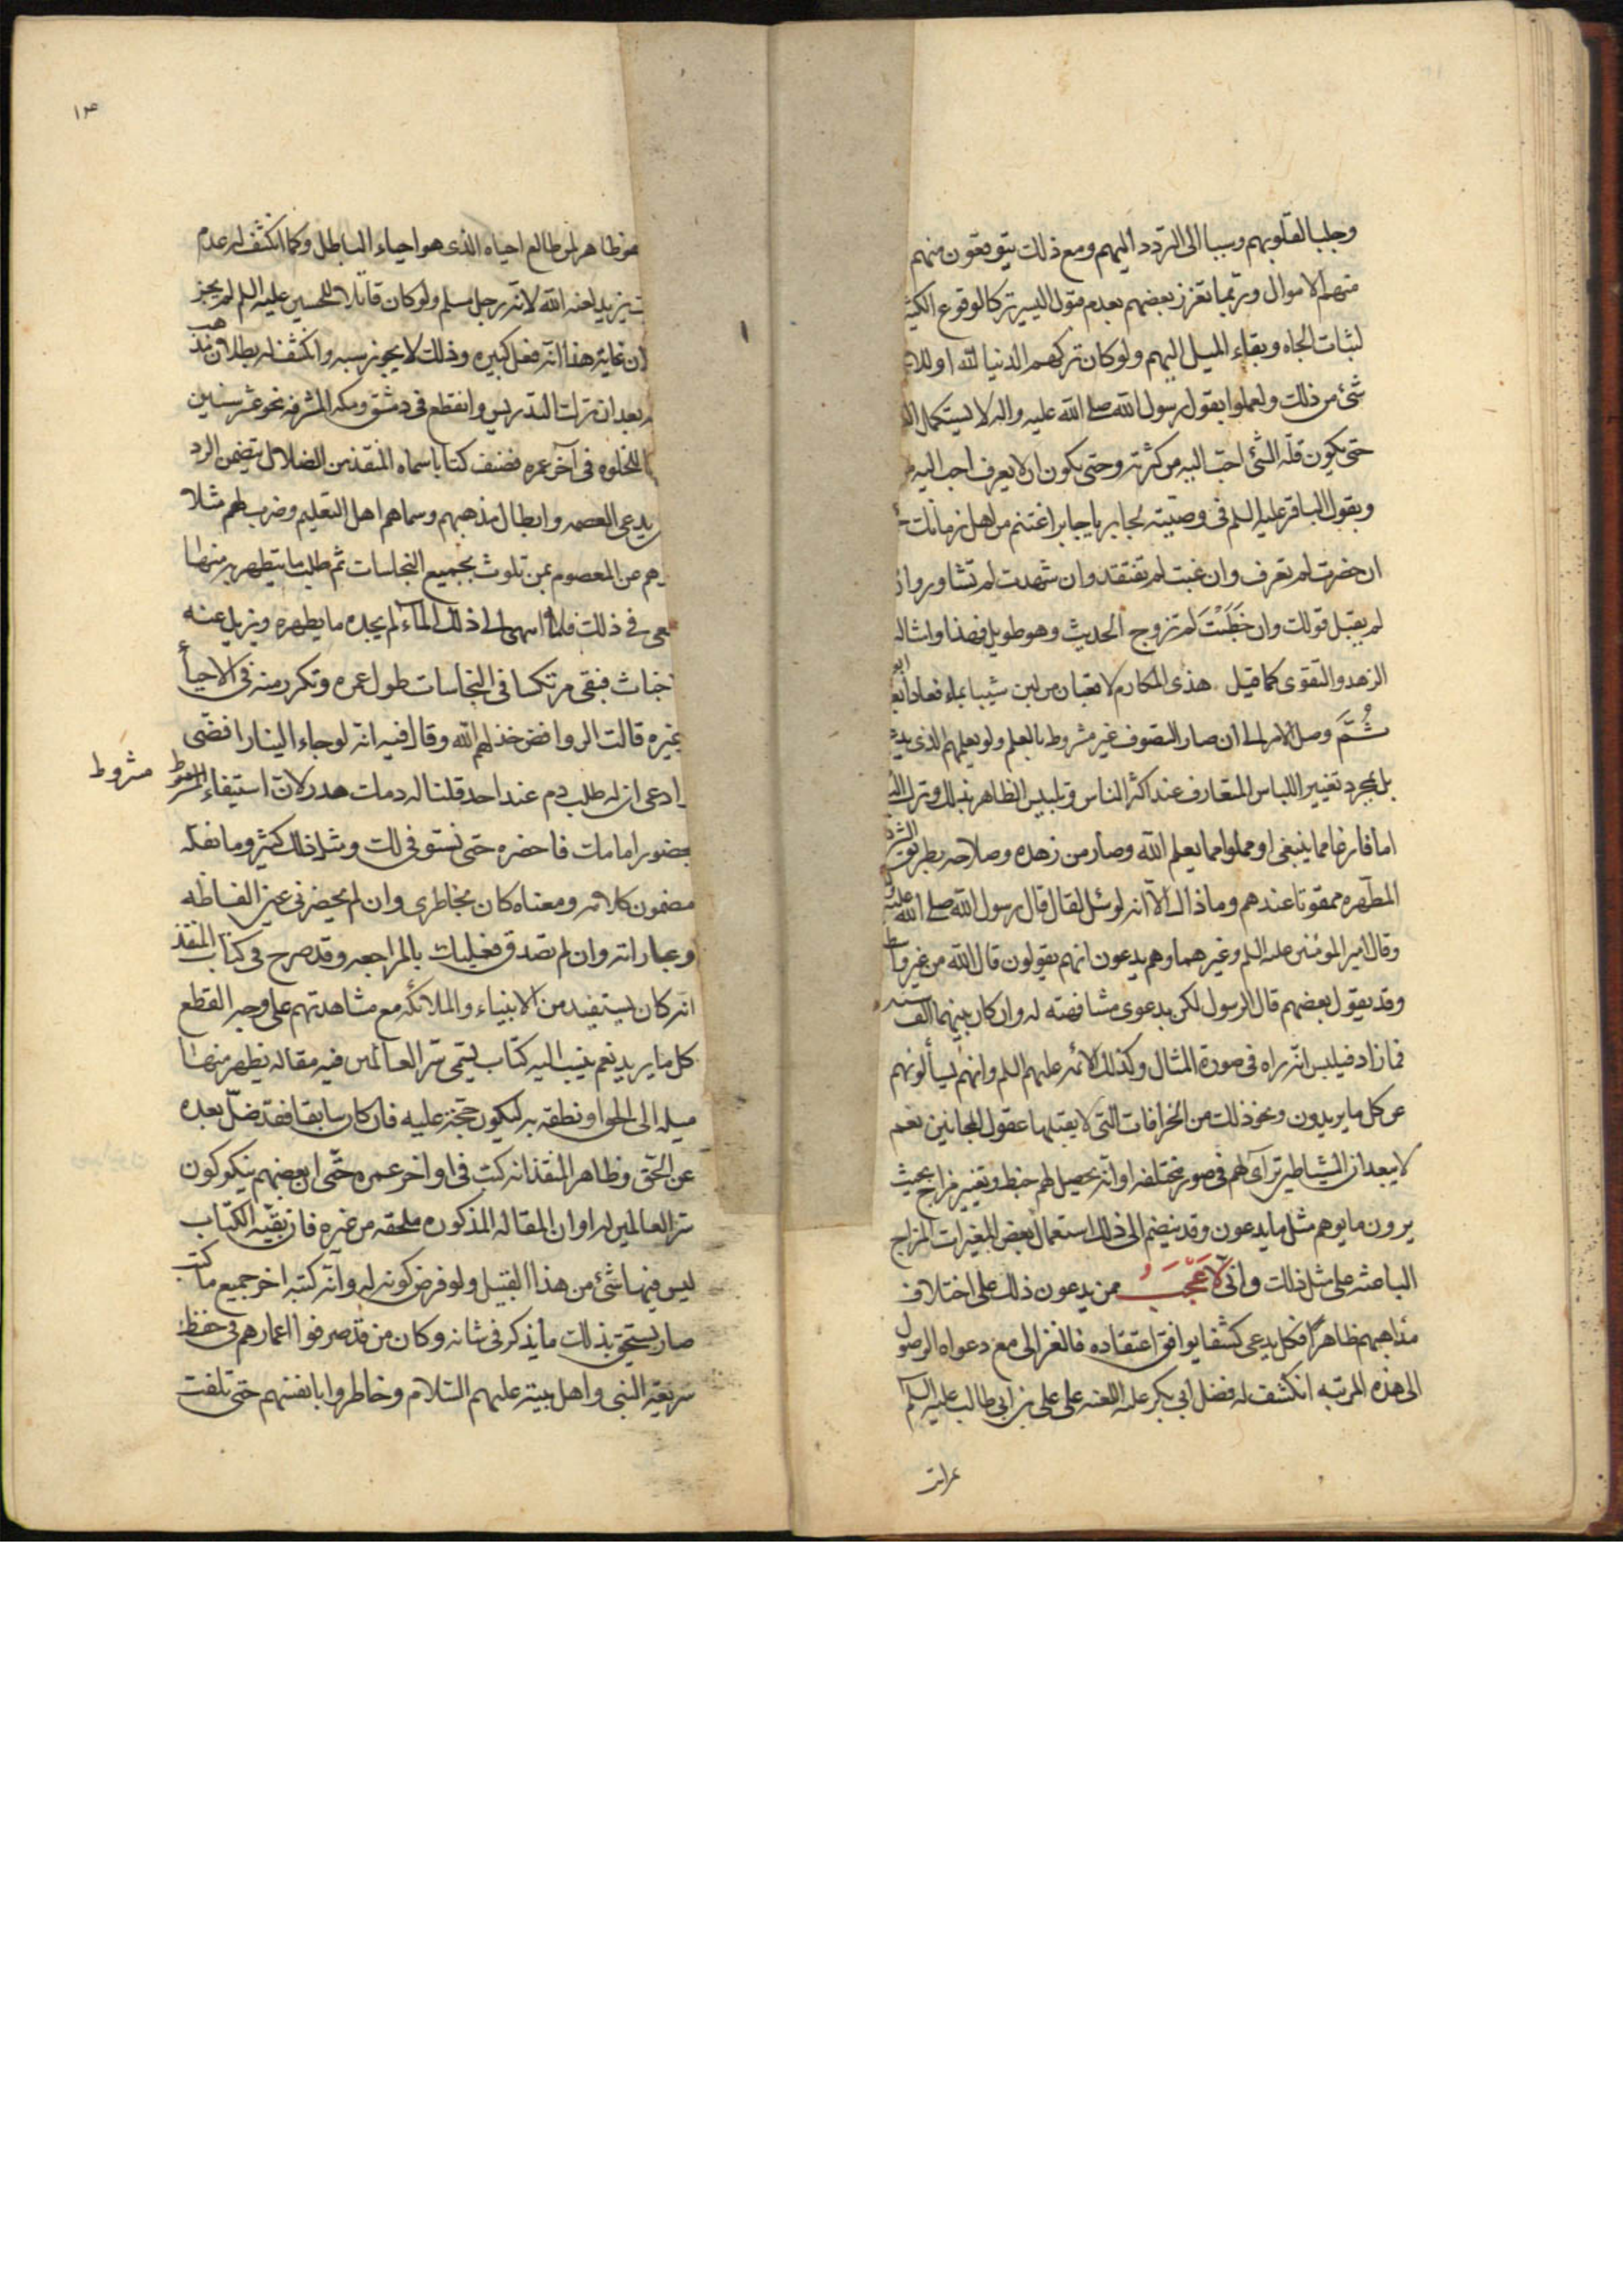 وجلبا لقلوبهم وسببا الى التردد اليهم ومع ذلك يتوقعون منهم
منهم الاموال وربما تعزز بعضهم بعدم قبول اليسير تركا لوقوع الكثير
لثبات الجاه وبقاء الميل اليهم ولو كان تركهم الدنيا لله او للا
شئ من ذلك ولعملوا بقول رسول الله صلى الله عليه واله لا يستكمل
حتى يكون قلة الشئ احب اليه من كثرته وحتى يكون ان لا يعرف احب اليه
وبقول الباقر عليه السلم فى وصيته لجابر يا جابر اغتنم من اهل زمانك
ان حضرت لم تعرف وان غبت لم تفتقد وان شهدت لم تشاور وان
لم يقبل قولك وان خطبت لم تزوج الحديث وهو طويل فهذا وامثاله
الزهد والتقوى كما قيل هذى المكارم لا قعبان من لبن شيبا بماء فعادا بعد ابوا
ثُمَّ وصل الامر الى ان صار التصوف غير مشروط بالعلم ولو بعلمهم الذى
بل بمجرد تغيير اللباس المتعارف عند اكثر الناس وتلبيس الظاهر بذلك وترك
اما فارغا مما ينبغى او مملوا مما يعلم الله وصار من زهده وصلاحه بطريق
المطهره ممقوتا عندهم وما ذاك الا انه لو سئل لقال قال رسول الله صلى الله عليه
وقال امير المؤمنين عليه السلم وغيرهما وهم يدعون انهم يقولون قال الله من غير
وقد يقول بعضهم قال الرسول لكن بدعوى مشافهته له وان كان بينهما الف سنه
فما زاد فيلبس انه راه فى صورة المثال وكذلك الائمه عليهم السلم وانهم يسألونهم
عن كل ما يريدون ونحو ذلك من الخرافات التى لا يقبلها عقول المجانين نعم
لا يبعد ان الشياطين تراآى لهم فى صور مختلفه او انه يحصل لهم خبط وتغيير مزاج بحيث
يرون ما يوهم مثل ما يدعون وقد ينضم الى ذلك استعمال بعض المغيرات المزاج
الباعثه على مثل ذلك وانى لاعجب ممن يدعون ذلك على اختلاف
مذاهبهم ظاهرا فكل يدعى كشفا يوافق اعتقاده فالغزالى مع دعواه الوصول
الى هذه المرتبه انكشف له فضل ابى بكر عليه اللعنه على على بن ابى طالب عليه السلم
بمراتب
١٣
هو ظاهر لمن طالع احياه الذى هو احياء الباطل وكما انكشف له عدم
يزيد لعنه الله لانه رجل مسلم ولو كان قاتلا للحسين عليه السلم لم يجز
ان غاية هذا انه فعل كبيره وذلك لا يجوز سبه وانكشف له بطلان مذهب
بعد ان ترك التدريس وانقطع فى دمشق ومكه المشرفه نحو عشر سنين
للخلوه فى آخر عمره فصنف كتابا سماه المنقذ من الضلال يتضمن الرد
يدعى العصمه وابطال مذهبهم وسماهم اهل التعليم وضرب لهم مثلا
هم عن المعصوم بمن تلوث بجميع النجاسات ثم طلب ما يتطهر به منها
فى ذلك فلما انتهى الى ذلك الماء لم يجده ما يطهره ويزيل عنه
اخباث فبقى مرتكسا فى النجاسات طول عمره وتكرر منه فى الاحيأ
غيره قالت الروافض خذلهم الله وقال فيه انه لو جاء الينا رافضى
ادعى ان له طلب دم عند احد قلنا له دمك هدر لان استيفاء المشروط مشروط
بحضور امامك فاحضره حتى نستوفى لك ومثل ذلك كثير وما نقله
مضمون كلامه ومعناه كان بخاطرى وان لم يحضرنى عين الفاظه
وعباراته وان لم تصدق فعليك بالمراجعه وقد صرح فى كتاب المنقذ
انه كان يستفيد من الانبياء والملائكه مع مشاهدتهم على وجه القطع
كل ما يريد نعم ينسب اليه كتاب يسمى سر العالمين فيه مقاله يظهر منها
ميله الى الحق او نطقه به ليكون حجة عليه فان كان سابقا فقد ضل بعده
عن الحق وظاهر المنقذ انه كتب فى اواخر عمره حتى ان بعضهم ينكر كون
سر العالمين له او ان المقاله المذكوره ملحقه من غيره فان بقية الكتاب
ليس فيها شئ من هذا القبيل ولو فرض كونه له وانه كتبه اخر جميع ما كتب
صار يستحق بذلك ما يذكر فى شانه وكان من قد صرفوا اعمارهم فى حفظ
شريعة النبى واهل بيته عليهم السلام وخاطروا بانفسهم حتى تلفت